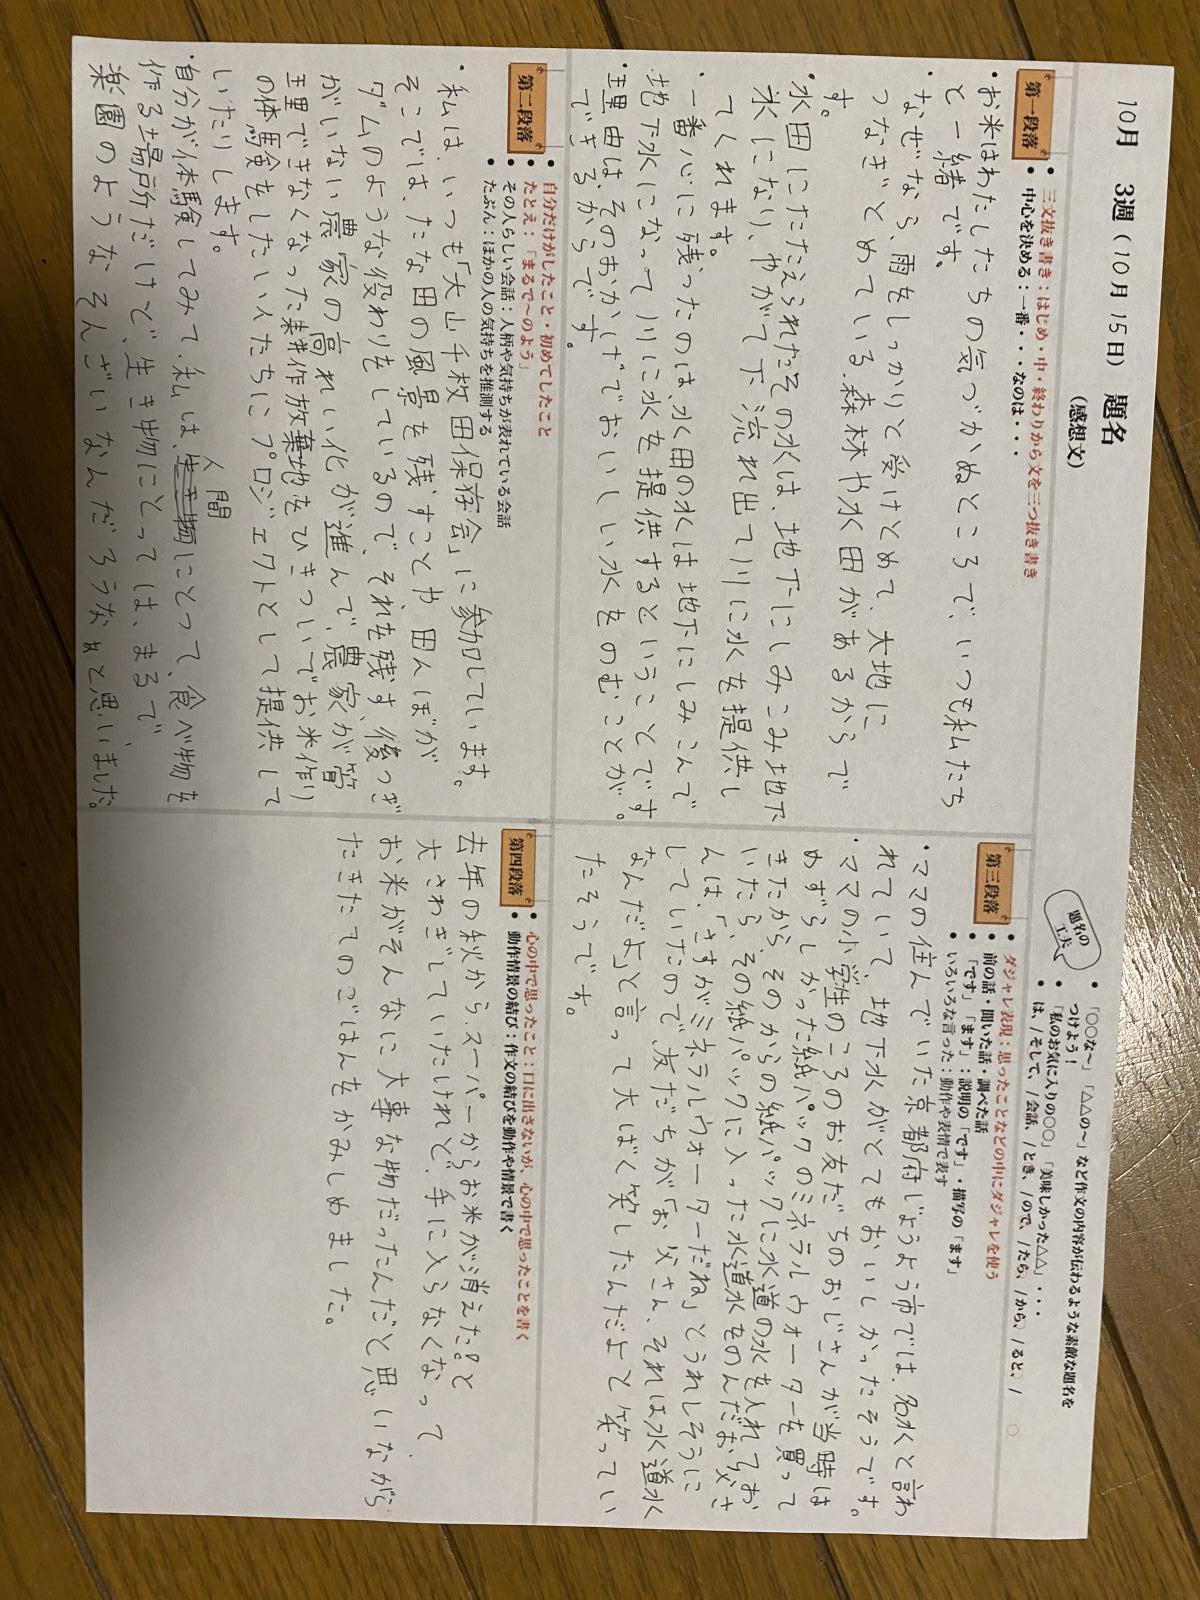 10月　3週（10月15日）　題名
（感想文）
題名の
工夫
• 「○○な～」「△△の～」など作文の内容が伝わるような素敵な題名を
つけよう！
• 「私のお気に入りの○○」「美味しかった△△」・・・
は、/そして、/会話、/とき、/ので、/たら、/から、/ると、/　○
第一段落
• 三文抜き書き：はじめ・中・終わりから文を三つ抜き書き
• 中心を決める：一番・・・なのは・・・
・お米はわたしたちの気づかぬところで、いつも私たち
と一緒です。
・なぜなら、雨をしっかりと受けとめて、大地に
つなぎとめている、森林や水田があるからで
す。
・水田にたたえられたその水は、地下にしみこみ地下
水になり、やがて下流れ出て川に水を提供し
てくれます。
・一番心に残ったのは、水田の水は地下にしみこんで
地下水になって川に水を提供するということです
・理由は、そのおかげでおいしい水をのむことが
できるからです。
第二段落
• 自分だけがしたこと・初めてしたこと
• たとえ：「まるで～のよう」
• その人らしい会話：人柄や気持ちが表れている会話
• たぶん：ほかの人の気持ちを推測する
・私は、いつも「大山千枚田保存会」に参加しています。
そこでは、たな田の風景を残すことや田んぼが
ダムのような役わりをしているので、それを残す、後つぎ
がいない農家の高れい化が進んで、農家が管
理できなくなった耕作放棄地をひきついでお米作り
の体験をしたい人たちにプロジェクトとして提供して
いたりします。
・自分が体験してみて、私は、人間にとって、食べ物を
作る場所だけど、生き物にとっては、まるで
楽園のようなそんざいなんだろうなぁと思いました。
第三段落
• ダジャレ表現：思ったことなどの中にダジャレを使う
• 前の話・聞いた話・調べた話
• 「です」「ます」：説明の「です」・描写の「ます」
• いろいろな言った：動作や表情で表す
・ママの住んでいた京都府じょうよう市では、名水と言わ
れていて、地下水がとてもおいしかったそうです。
・ママの小学生のころのお友だちのおじさんが当時は
めずらしかった紙パックのミネラルウォーターを買って
きたから、そのからの紙パックに水道の水を入れてお
いたら、その紙パックに入った水道水をのんだお父さ
んは、「さすがミネラルウォーターだね」とうれしそうに
していたので、友だちが「お父さん、それは水道水
なんだよ」と言って大ばく笑したんだよと笑ってい
たそうです。
第四段落
• 心の中で思ったこと：口に出さないが、心の中で思ったことを書く
• 動作情景の結び：作文の結びを動作や情景で書く
去年の秋から、スーパーからお米が消えた。と
大さわぎしていたけれど、手に入らなくなって、
お米がそんなに大事な物だったんだと思いながら、
たきたてのごはんをかみしめました。